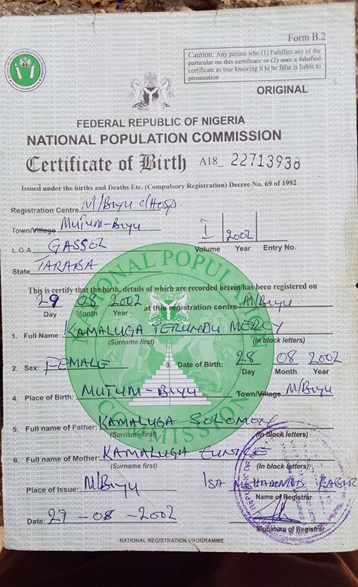 Form B.2
Caution: Any person who (1) Falsifies any of the
particular on this certificate or (2) uses a falsified
certificate as true knowing it to be false is liable to
prosecution
ORIGINAL
FEDERAL REPUBLIC OF NIGERIA
NATIONAL POPULATION COMMISSION
Certificate of Birth A18 22713938
Issued under the births and Deaths Etc. (Compulsory Registration) Decree No. 69 of 1992
Registration Centre M/Biyu c/Hosp.
Town/Village Mutum-Biyu
I 2002
L.G.A GASSOL Volume Year Entry No.
State TARABA
This is certify that the birth, details of which are recorded herein has been registered on
29 08 2002 at this registration centre M/Biyu
Day Month Year
1. Full Name: KAMALUGA MERCY
(Surname first) (In block letters)
2. Sex: FEMALE 3. Date of Birth: 28 08 2002
Day Month Year
4. Place of Birth: MUTUM-BIYU Town/Village M/Biyu
5. Full name of Father: KAMALUGA SOLOMON
(Surname first) (In block letters)
6. Full name of Mother: KAMALUGA EUNICE
(Surname first) (In block letters)
Place of Issue: M/Biyu ISA MUHAMMED
Name of Registrar
Date: 29-08-2002
Signature of Registrar
NATIONAL REGISTRATION PROGRAMME
NATIONAL POPULATION
COMMISSION